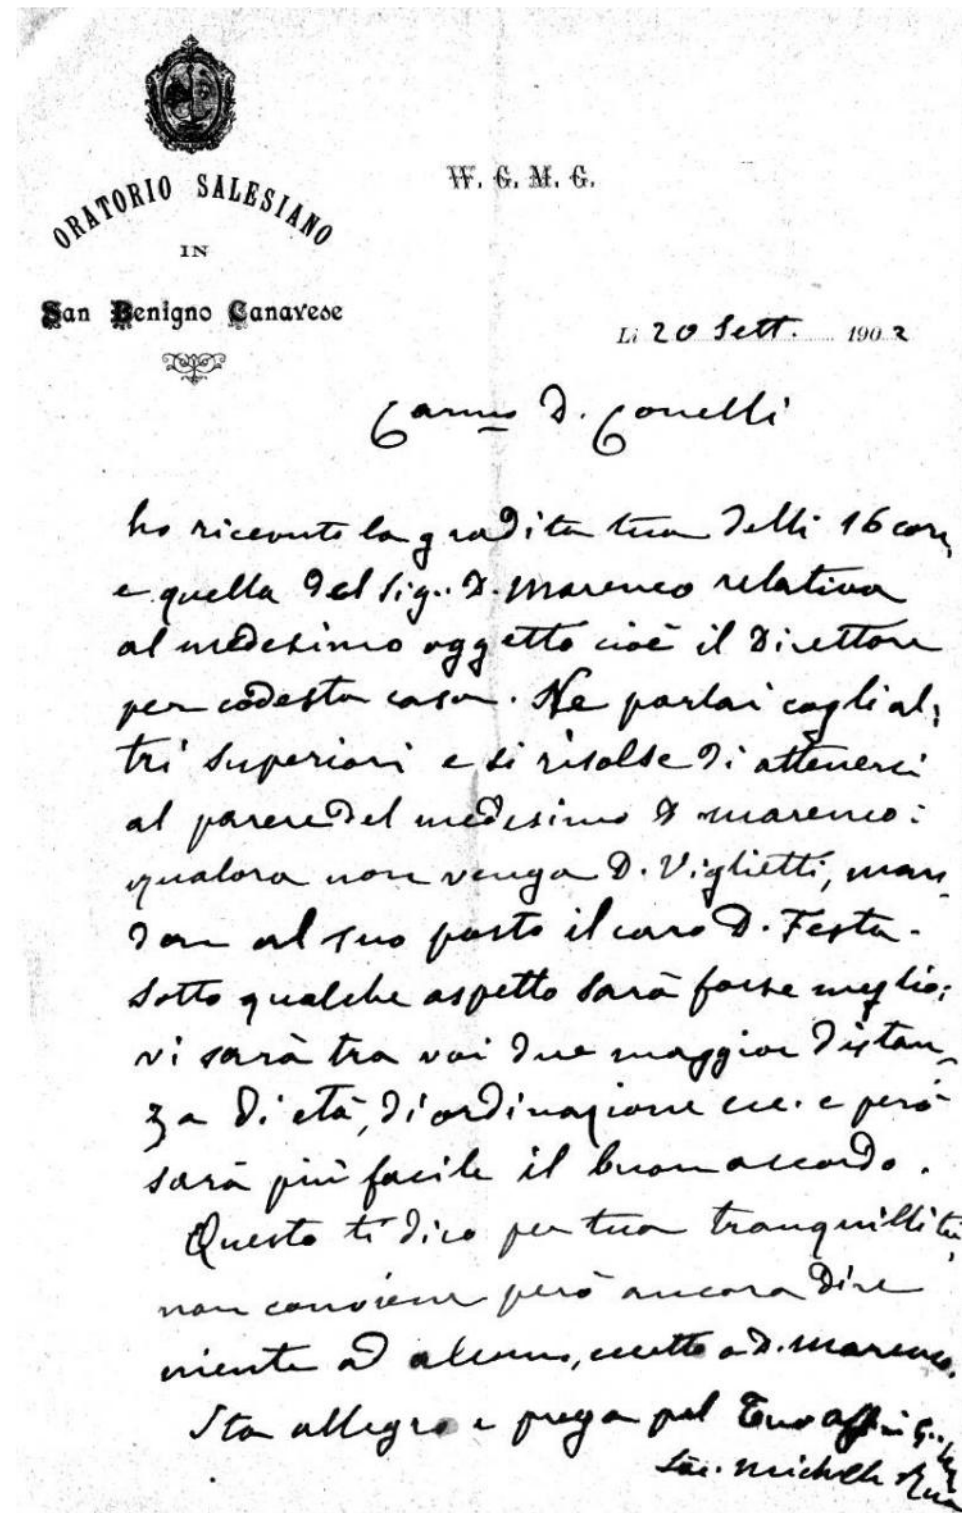 ORATORIO SALESIANO
IN
San Benigno Canavese
W. G. M. G.
Li 20 Sett. 1902
Carmo D. Conelli
ho ricevuto la gradita tua delli 16 corr,
e quella del Sig.. D. Marenco relativa
al medesimo oggetto cioè il Direttore
per codesta casa. Ne parlai cogli al,
tri superiori e si risolse di attenerci
al parere del medesimo D Marenco:
qualora non venga D. Viglietti, man,
dare al suo posto il caro D. Festa.
Sotto qualche aspetto sarà forse meglio;
vi sarà tra voi due maggior distan,
za di età, di ordinazione ecc. e però
sarà più facile il buon accordo.
Questo ti dico per tua tranquillità,
non conviene però ancora dire
niente ad alcuno, eccetto a D. Marenco.
Sta allegro e prega pel Tuo affm in G..
Sac. Michele Rua